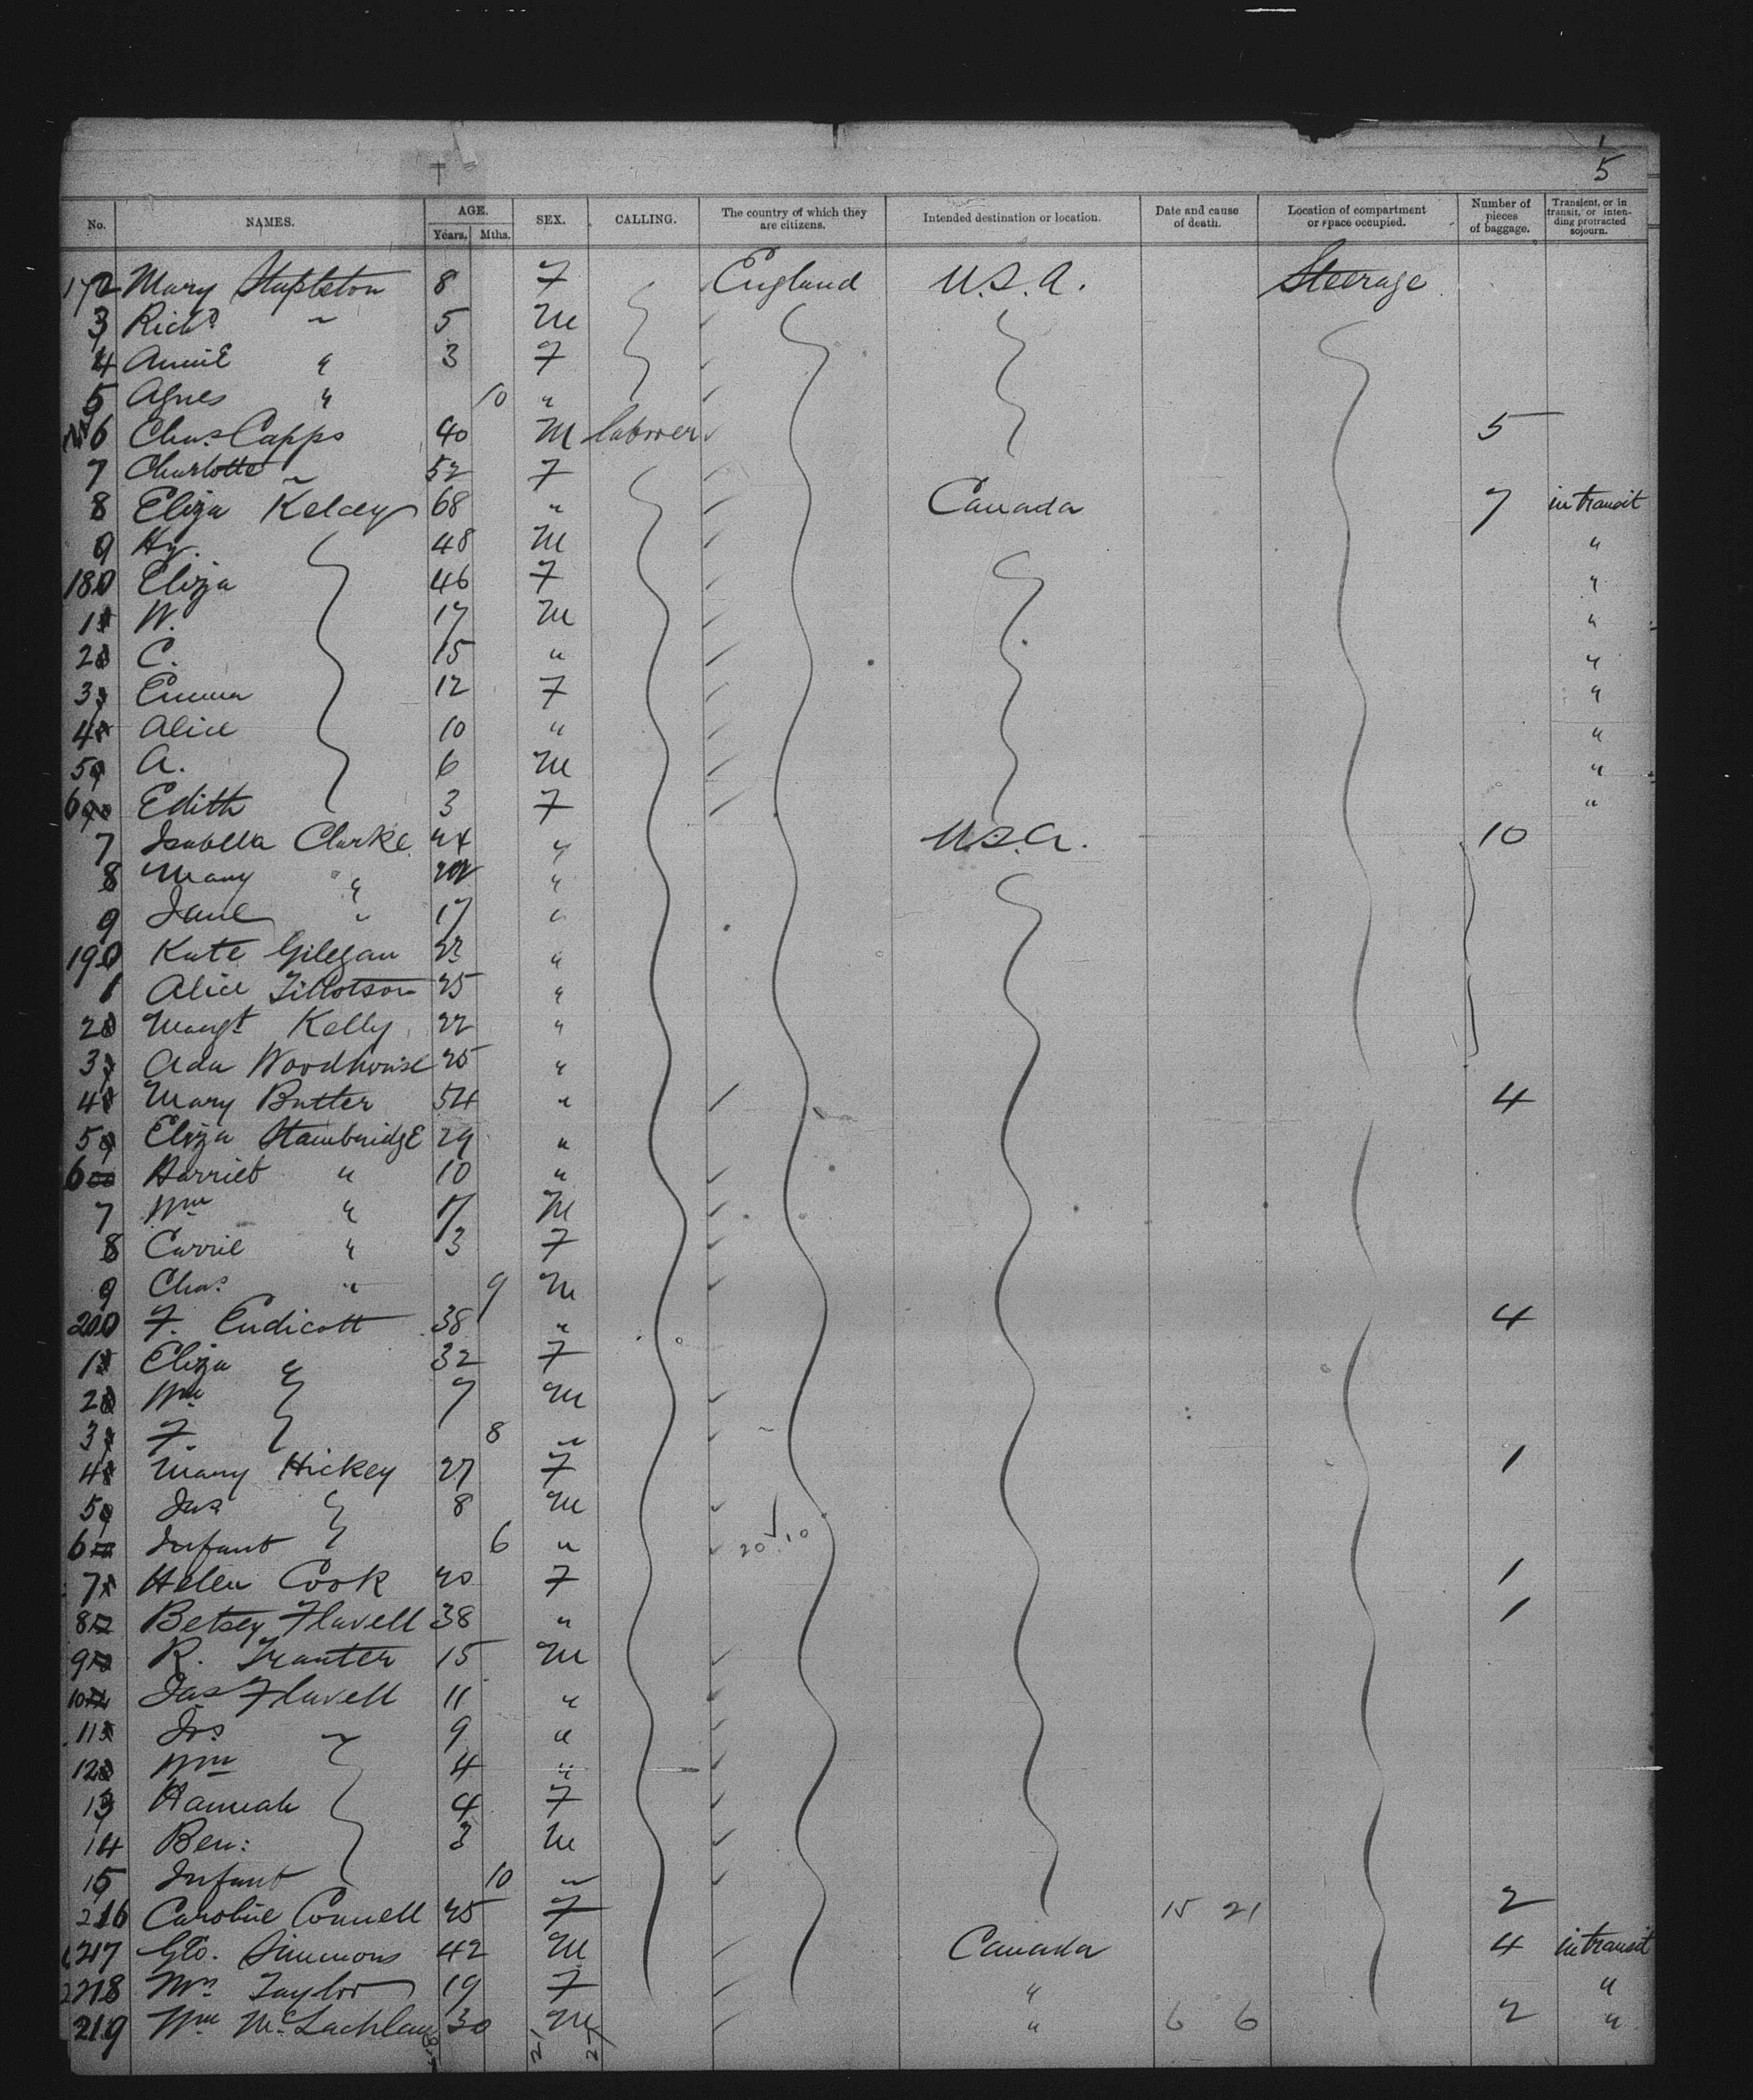 5
No. NAMES. AGE. Years. Mths. SEX. CALLING. The country of which they are citizens. Intended destination or location. Date and cause of death. Location of compartment or space occupied. Number of pieces of baggage. Transient, or in transit, or intending protracted sojourn.
172 Mary Stapleton 8 F England U.S.A. Steerage
3 Richd ~ 5 M
4 Annie " 3 F
5 Agnes " 10 "
6 Chas Capps 40 M labourer 5
7 Charlotte ~ 52 F
8 Eliza Kelcey 68 " Canada 7 in transit
9 Hy. 48 M "
180 Eliza 46 F "
1 W. 17 M "
2 C. 15 " "
3 Emma 12 F "
4 Alice 10 " "
5 A. 6 M "
6 Edith 3 F "
7 Isabella Clarke 24 " U.S.A. 10
8 Mary " "
9 Jane " 17 "
190 Kate Gilegan 23 "
1 Alice Tillotson 25 "
2 Margt Kelly 22 "
3 Ada Woodhouse 25 "
4 Mary Butter 54 " 4
5 Eliza Stambridge 29 "
6 Harriet " 10 "
7 Wm " M
8 Carrie " 3 F
9 Chas " 9 M
200 F. Endicott 38 " 4
1 Eliza " 32 F
2 Wm 7 M
3 F. 8 "
4 Mary Hickey 27 F 1
5 Jas 8 M
6 Infant 6 " 20 10
7 Helen Cook 20 F 1
8 Betsey Flavell 38 " 1
9 R. Tranter 15 M
10 Jas Flavell 11 "
11 Jos ~ 9 "
12 Wm 4 "
13 Hannah 4 F
14 Ben: 3 M
15 Infant 10 "
216 Caroline Connell 25 F 15 21 2
217 Geo. Simmons 42 M Canada 4 in transit
218 Mrs Taylor 19 F " "
219 Wm McLachlan 30 M " 6 6 2 "